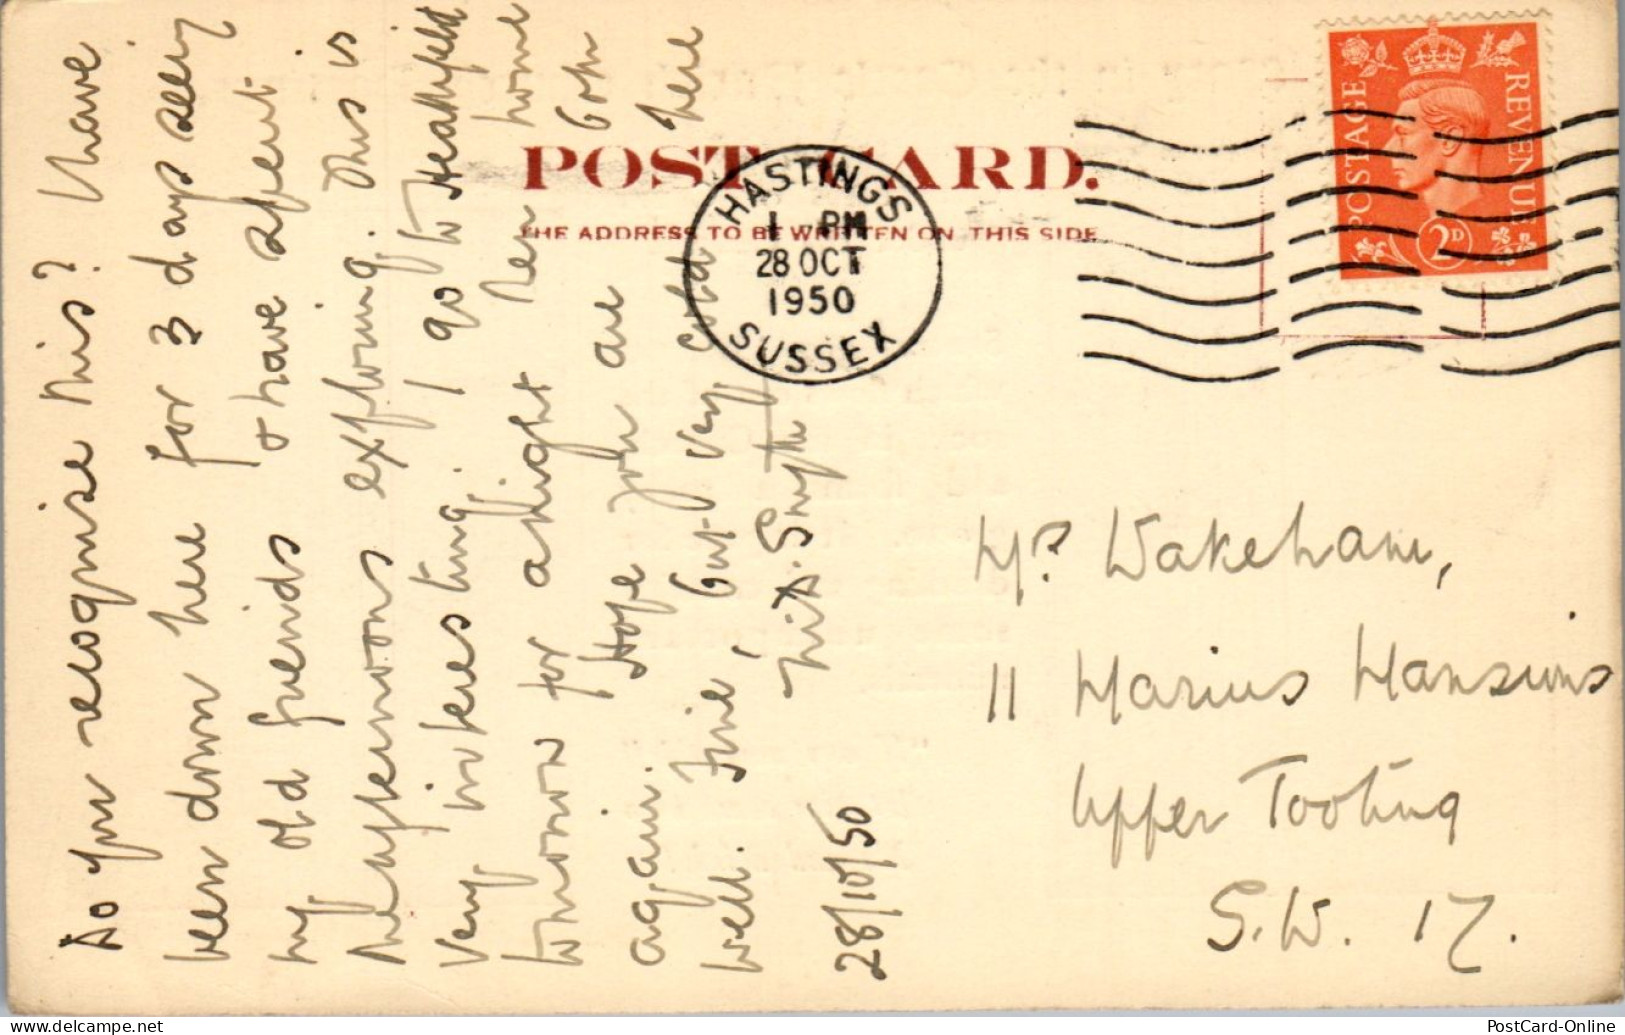 POST CARD.
THE ADDRESS TO BE WRITTEN ON THIS SIDE
HASTINGS
1 PM
28 OCT
1950
SUSSEX
POSTAGE
REVENUE
2D
Do you recognise this? I have
been down here for 3 days seeing
my old friends & have spent
the afternoons exploring. This is
very interesting. I go to Heathfield
tomorrow for a night then home
again. Hope you are both
well. Fine, but very cold here
Smyth
28/10/50
Mrs Wakeham,
11 Marius Mansions
Upper Tooting
S.W. 17.
PostCard-Online